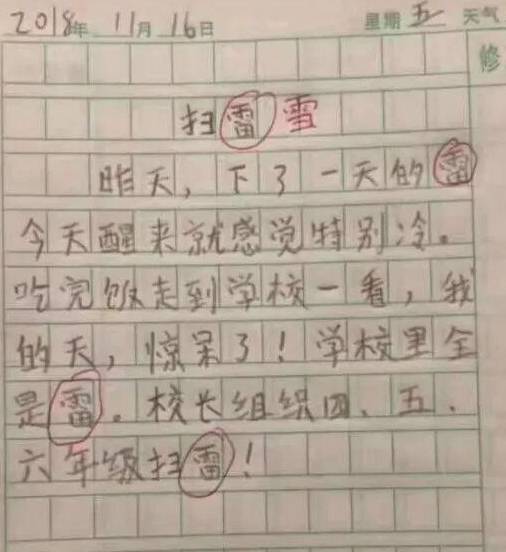 2018年 11月 16日 星期 五 天气
修
扫雷 雪
昨天，下了一天的雷
今天醒来就感觉特别冷。
吃完饭走到学校一看，我
的天，惊呆了！学校里全
是雷。校长组织四、五、
六年级扫雷！